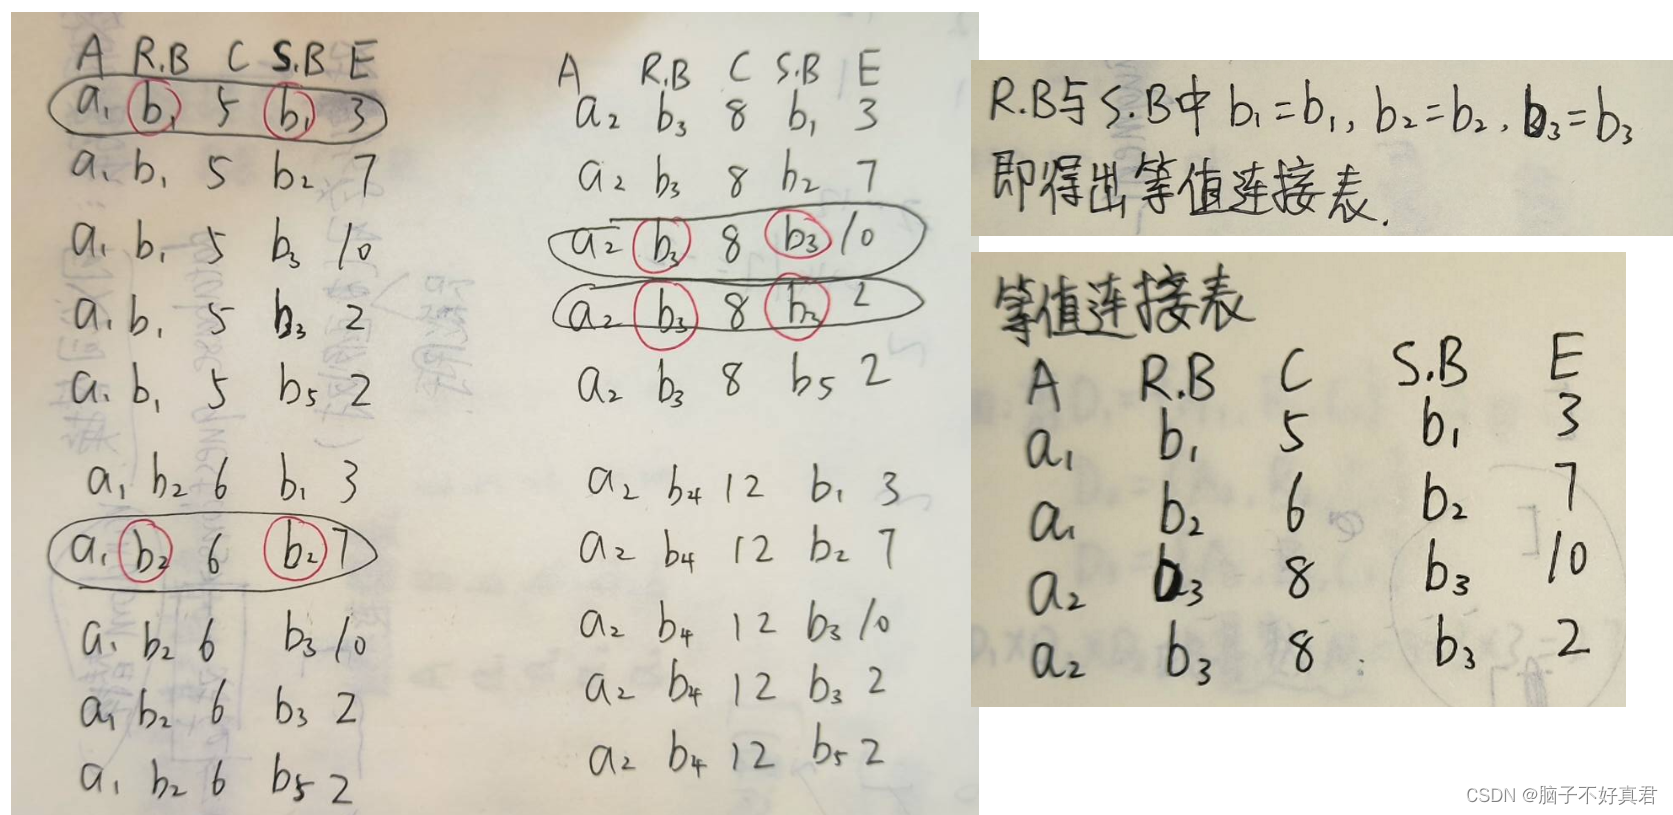 A R.B C S.B E
a₁ b₁ 5 b₁ 3
a₁ b₁ 5 b₂ 7
a₁ b₁ 5 b₃ 10
a₁ b₁ 5 b₃ 2
a₁ b₁ 5 b₅ 2
a₁ b₂ 6 b₁ 3
a₁ b₂ 6 b₂ 7
a₁ b₂ 6 b₃ 10
a₁ b₂ 6 b₃ 2
a₁ b₂ 6 b₅ 2
A R.B C S.B E
a₂ b₃ 8 b₁ 3
a₂ b₃ 8 b₂ 7
a₂ b₃ 8 b₃ 10
a₂ b₃ 8 b₃ 2
a₂ b₃ 8 b₅ 2
a₂ b₄ 12 b₁ 3
a₂ b₄ 12 b₂ 7
a₂ b₄ 12 b₃ 10
a₂ b₄ 12 b₃ 2
a₂ b₄ 12 b₅ 2
R.B与S.B中 b₁=b₁, b₂=b₂, b₃=b₃
即得出等值连接表.
等值连接表
A R.B C S.B E
a₁ b₁ 5 b₁ 3
a₁ b₂ 6 b₂ 7
a₂ b₃ 8 b₃ 10
a₂ b₃ 8 b₃ 2
CSDN @脑子不好真君